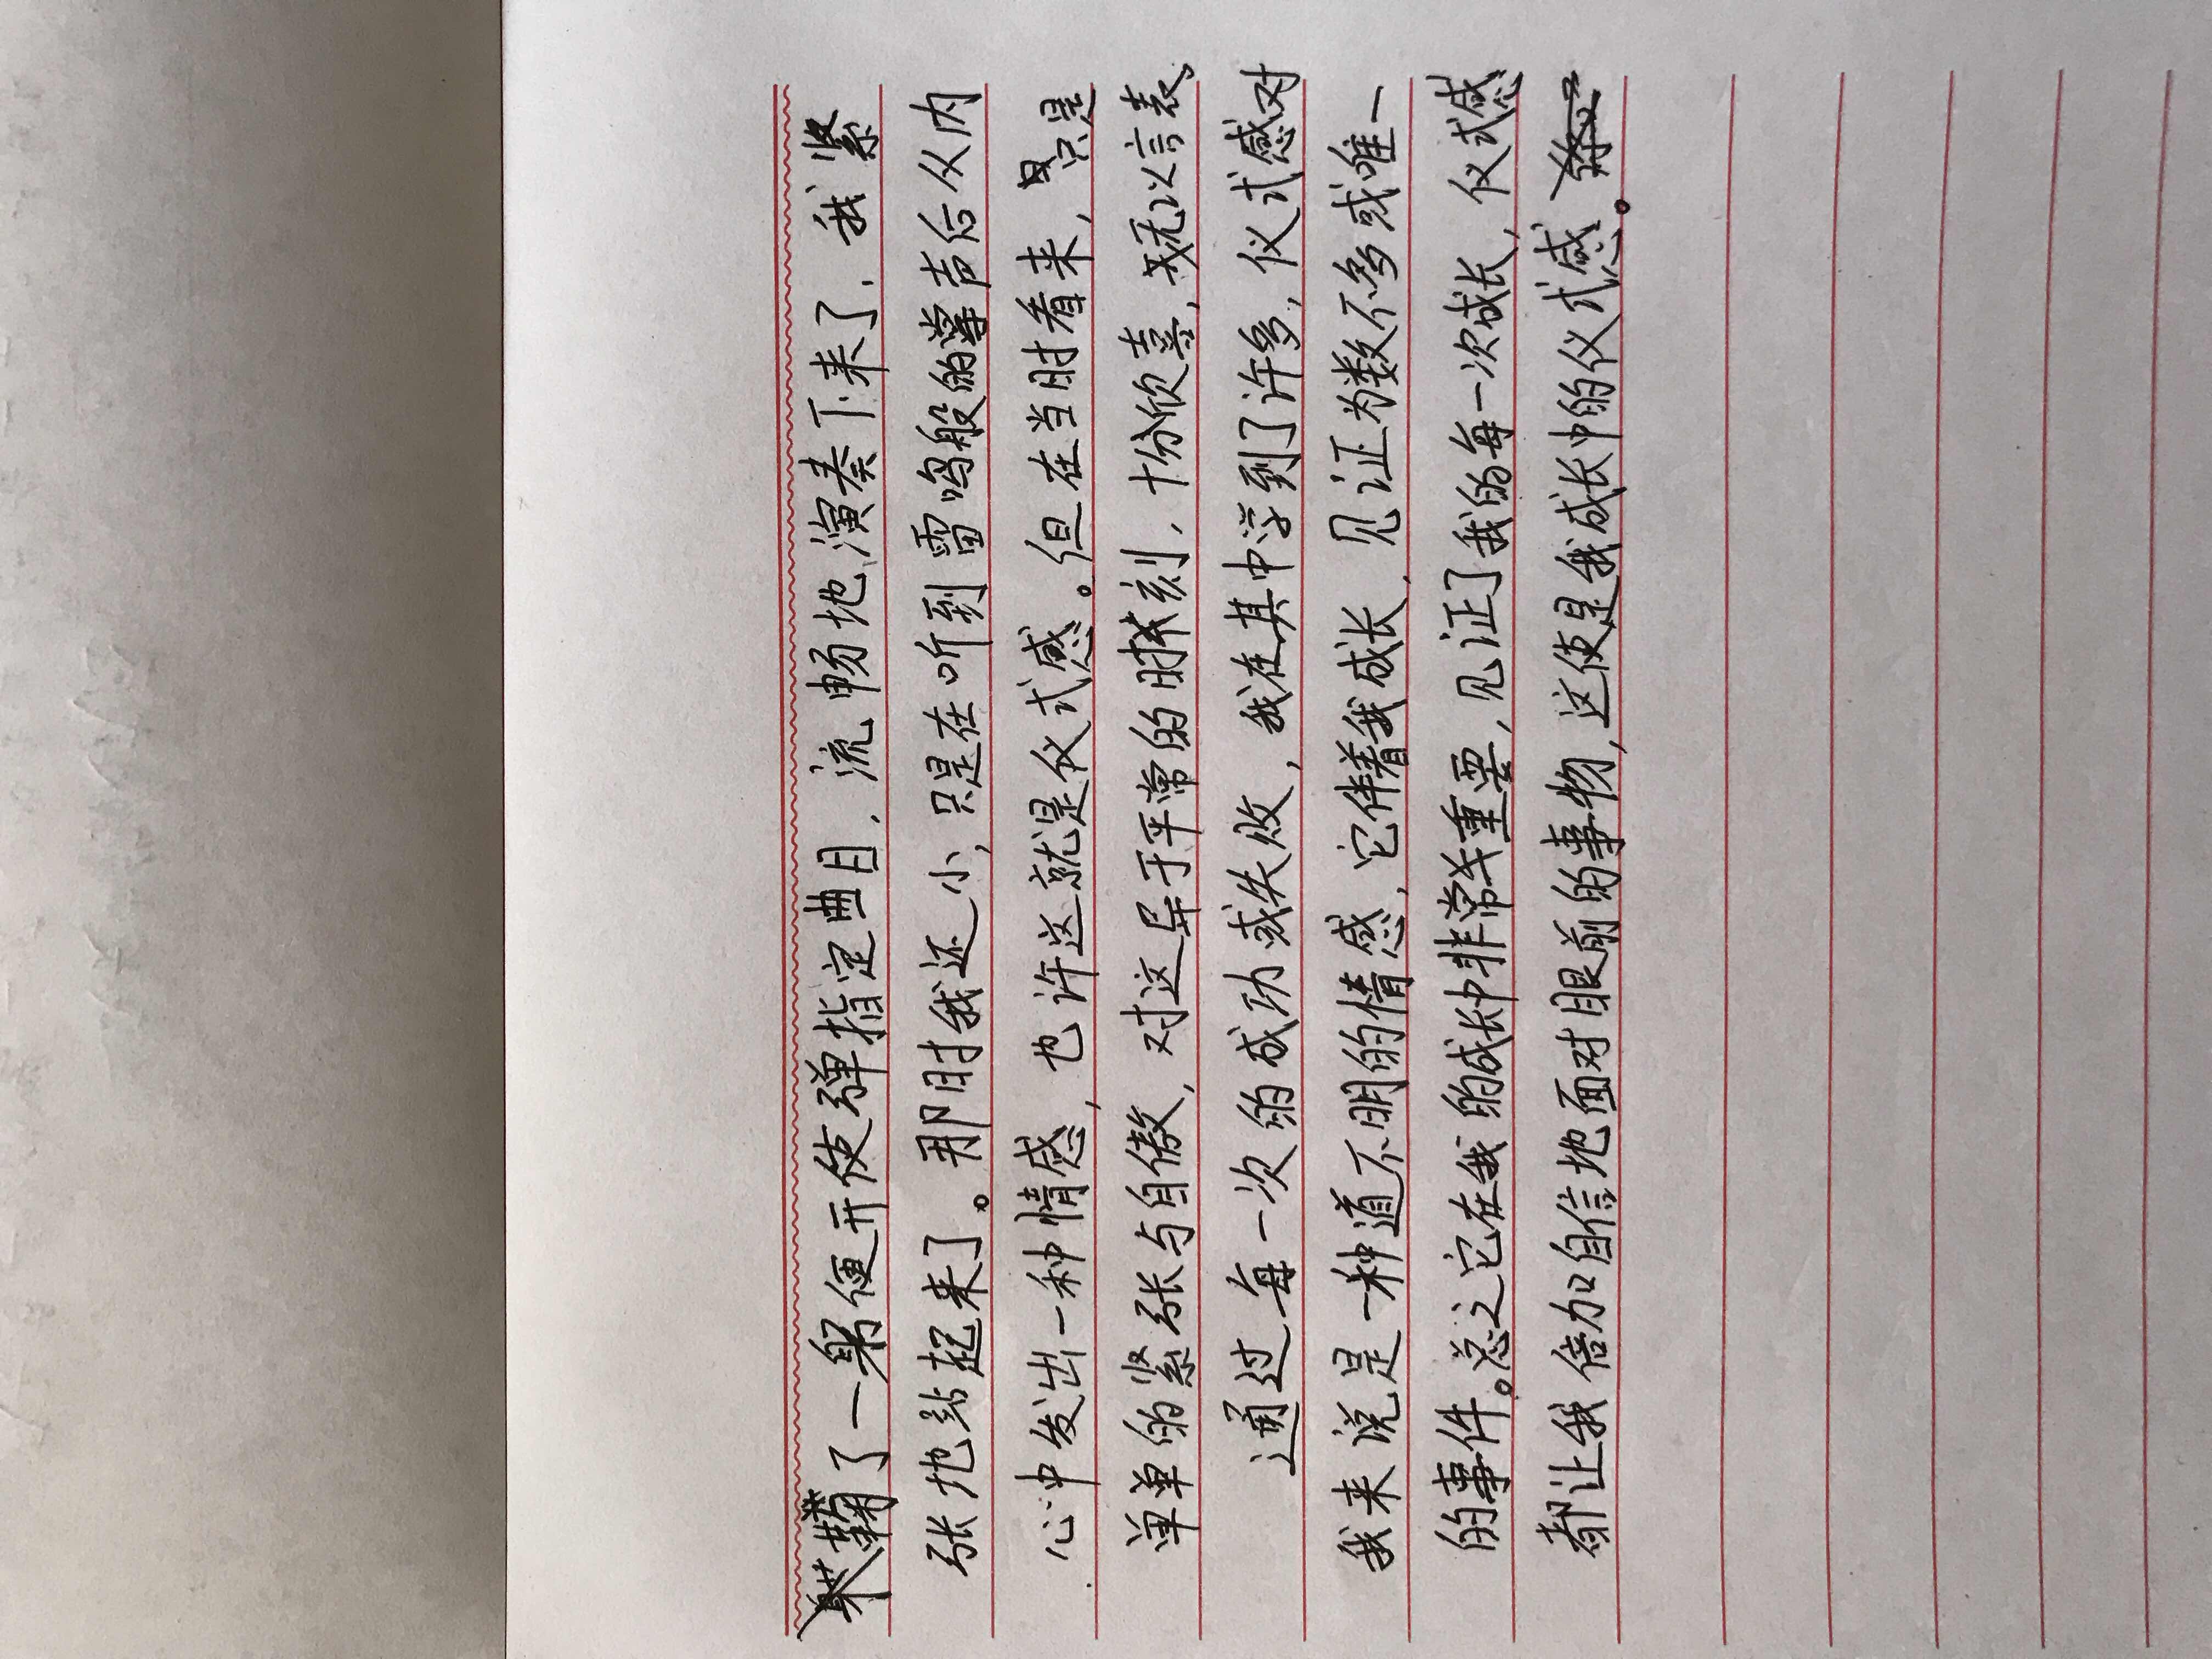 鞠了一躬便开使弹指定曲目，流畅地演奏下来了，我紧
张地站起来了。那时我还小，只是在听到雷鸣般的掌声后从内
心中发出一种情感，也许这就是仪式感。但在当时看来，只是
单单的紧张与自傲，对这异于平常的时刻，十分欣喜，无以言表
通过每一次的成功或失败，我在其中学到了许多，仪式感对
我来说是一种道不明的情感，它伴着我成长，见证为数不多或唯一
的事件。总之它在我的成长中非常重要，见证了我的每一次成长，仪式感
都让我倍加自信地面对眼前的事物，这使是我成长中的仪式感。